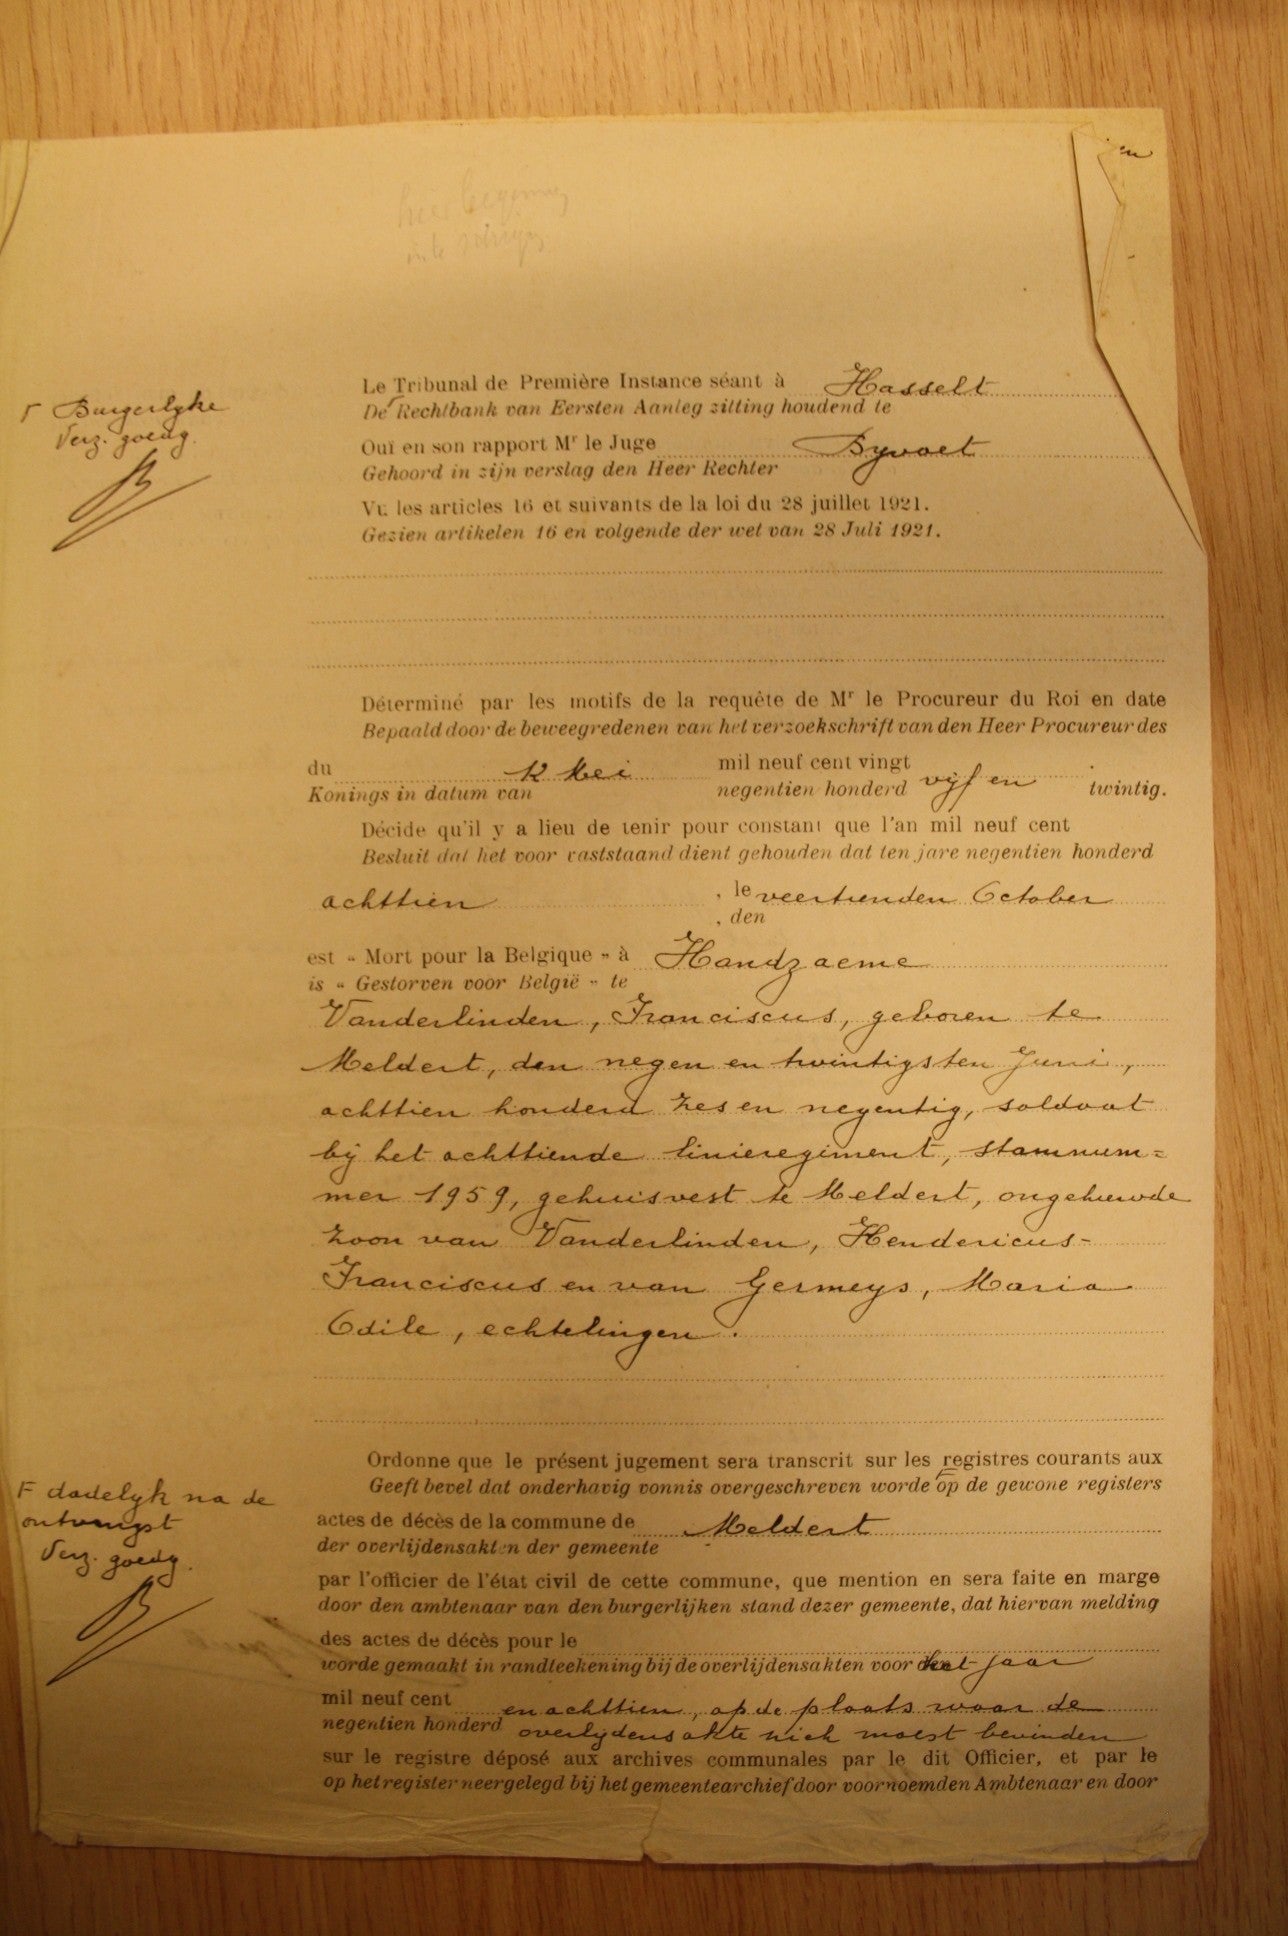 en
Le Tribunal de Première Instance séant à Hasselt
De Rechtbank van Eersten Aanleg zitting houdend te
Γ Burgerlyke
Verz. goedg.
Ouï en son rapport Mr le Juge Byvoet
Gehoord in zijn verslag den Heer Rechter
Vu les articles 16 et suivants de la loi du 28 juillet 1921.
Gezien artikelen 16 en volgende der wet van 28 Juli 1921.
Déterminé par les motifs de la requête de Mr le Procureur du Roi en date
Bepaald door de beweegredenen van het verzoekschrift van den Heer Procureur des
du 12 Mei mil neuf cent vingt
Konings in datum van negentien honderd vijf en twintig.
Décide qu'il y a lieu de tenir pour constant que l'an mil neuf cent
Besluit dat het voor vaststaand dient gehouden dat ten jare negentien honderd
achttien , le veertienden October
, den
est « Mort pour la Belgique » à Handzaeme
is « Gestorven voor België » te
Vanderlinden, Franciscus, geboren te
Meldert, den negen en twintigsten Juni,
achttien honderd zes en negentig, soldaat
bij het achttiende linieregiment, stamnum=
mer 1959, gehuisvest te Meldert, ongehuwde
zoon van Vanderlinden, Hendericus-
Franciscus en van Germeys, Maria
Odile, echtelingen.
Ordonne que le présent jugement sera transcrit sur les registres courants aux
Geeft bevel dat onderhavig vonnis overgeschreven worde op de gewone registers
F dadelyk na de
ontvangst
Verz. goedg.
actes de décès de la commune de Meldert
der overlijdensakten der gemeente
par l'officier de l'état civil de cette commune, que mention en sera faite en marge
door den ambtenaar van den burgerlijken stand dezer gemeente, dat hiervan melding
des actes de décès pour le
worde gemaakt in randteekening bij de overlijdensakten voor het jaar
mil neuf cent en achttien, op de plaats waar de
negentien honderd overlijdensakte zich moest bevinden
sur le registre déposé aux archives communales par le dit Officier, et par le
op het register neergelegd bij het gemeentearchief door voornoemden Ambtenaar en door